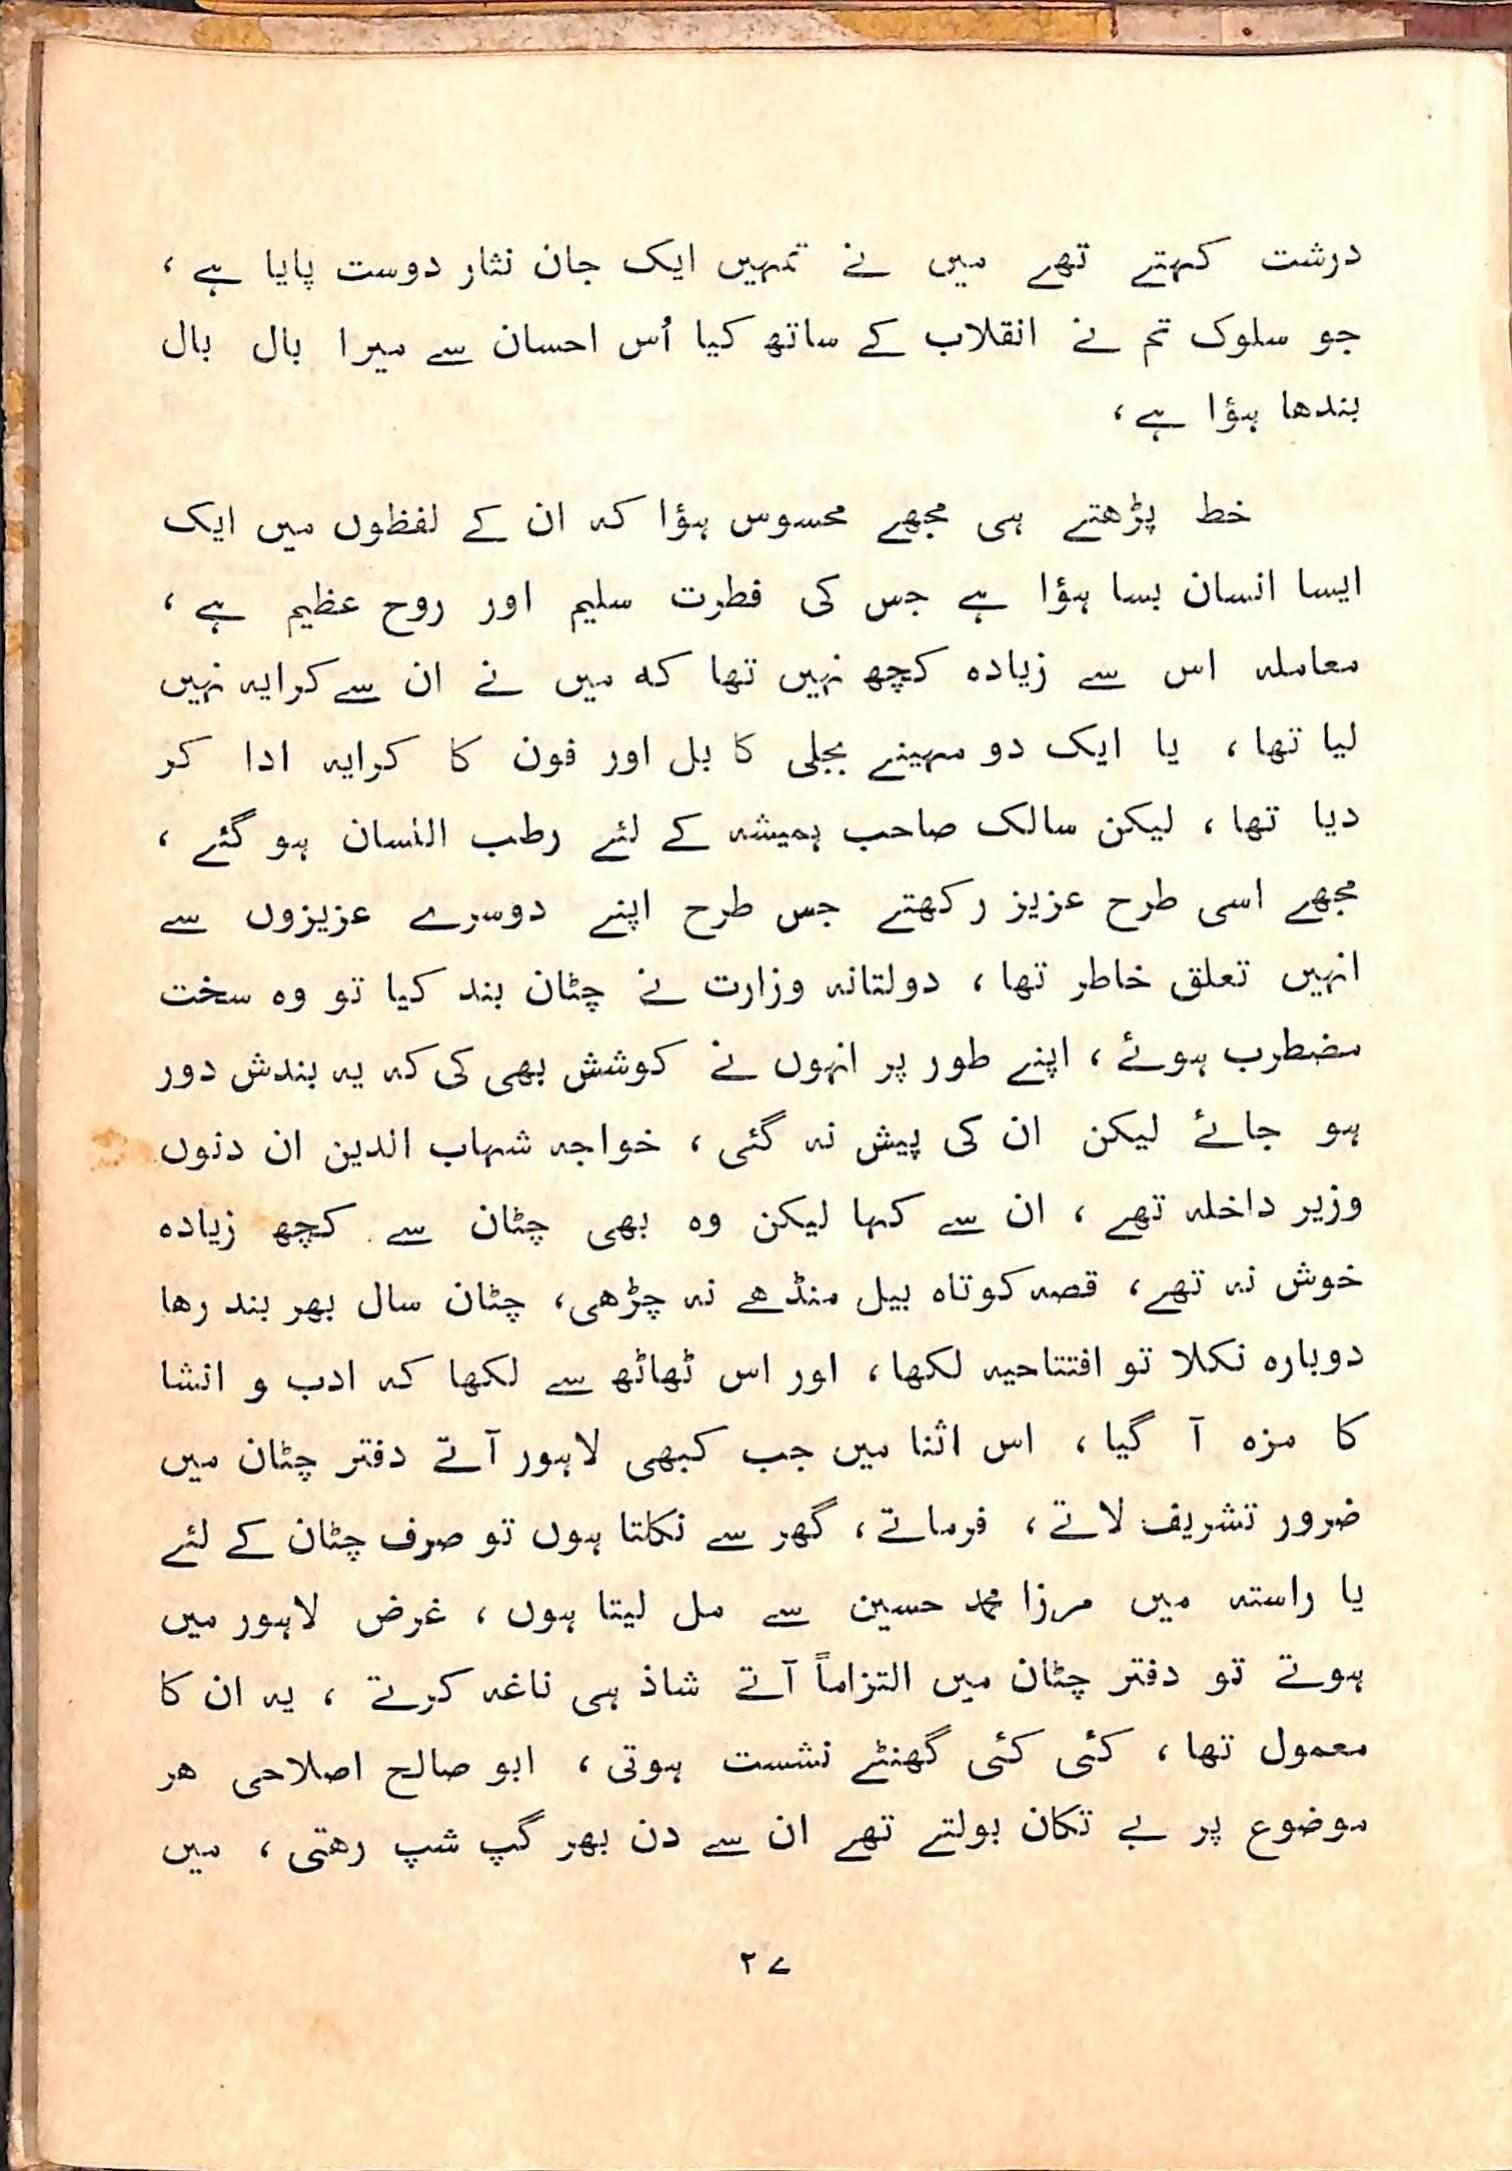 درشت کہتے تھے میں نے تمہیں ایک جان نثار دوست پایا ہے ،
جو سلوک تم نے انقلاب کے ساتھ کیا اُس احسان سے میرا بال بال
بندھا ہؤا ہے ،
خط پڑھتے ہی مجھے محسوس ہؤا کہ ان کے لفظوں میں ایک
ایسا انسان بسا ہؤا ہے جس کی فطرت سلیم اور روح عظیم ہے ،
معاملہ اس سے زیادہ کچھ نہیں تھا کہ میں نے ان سے کرایہ نہیں
لیا تھا ، یا ایک دو مہینے بجلی کا بل اور فون کا کرایہ ادا کر
دیا تھا ، لیکن سالک صاحب ہمیشہ کے لئے رطب اللسان ہو گئے ،
مجھے اسی طرح عزیز رکھتے جس طرح اپنے دوسرے عزیزوں سے
انہیں تعلق خاطر تھا ، دولتانہ وزارت نے چٹان بند کیا تو وہ سخت
مضطرب ہوئے ، اپنے طور پر انہوں نے کوشش بھی کی کہ یہ بندش دور
ہو جائے لیکن ان کی پیش نہ گئی ، خواجہ شہاب الدین ان دنوں
وزیر داخلہ تھے ، ان سے کہا لیکن وہ بھی چٹان سے کچھ زیادہ
خوش نہ تھے ، قصہ کوتاہ بیل منڈھے نہ چڑھی ، چٹان سال بھر بند رھا
دوبارہ نکلا تو افتتاحیہ لکھا ، اور اس ٹھاٹھ سے لکھا کہ ادب و انشا
کا مزہ آ گیا ، اس اثنا میں جب کبھی لاہور آتے دفتر چٹان میں
ضرور تشریف لاتے ، فرماتے ، گھر سے نکلتا ہوں تو صرف چٹان کے لئے
یا راستہ میں مرزا محمد حسین سے مل لیتا ہوں ، غرض لاہور میں
ہوتے تو دفتر چٹان میں التزاماً آتے شاذ ہی ناغہ کرتے ، یہ ان کا
معمول تھا ، کئی کئی گھنٹے نشست ہوتی ، ابو صالح اصلاحی ھر
موضوع پر بے تکان بولتے تھے ان سے دن بھر گپ شپ رھتی ، میں
۲۷